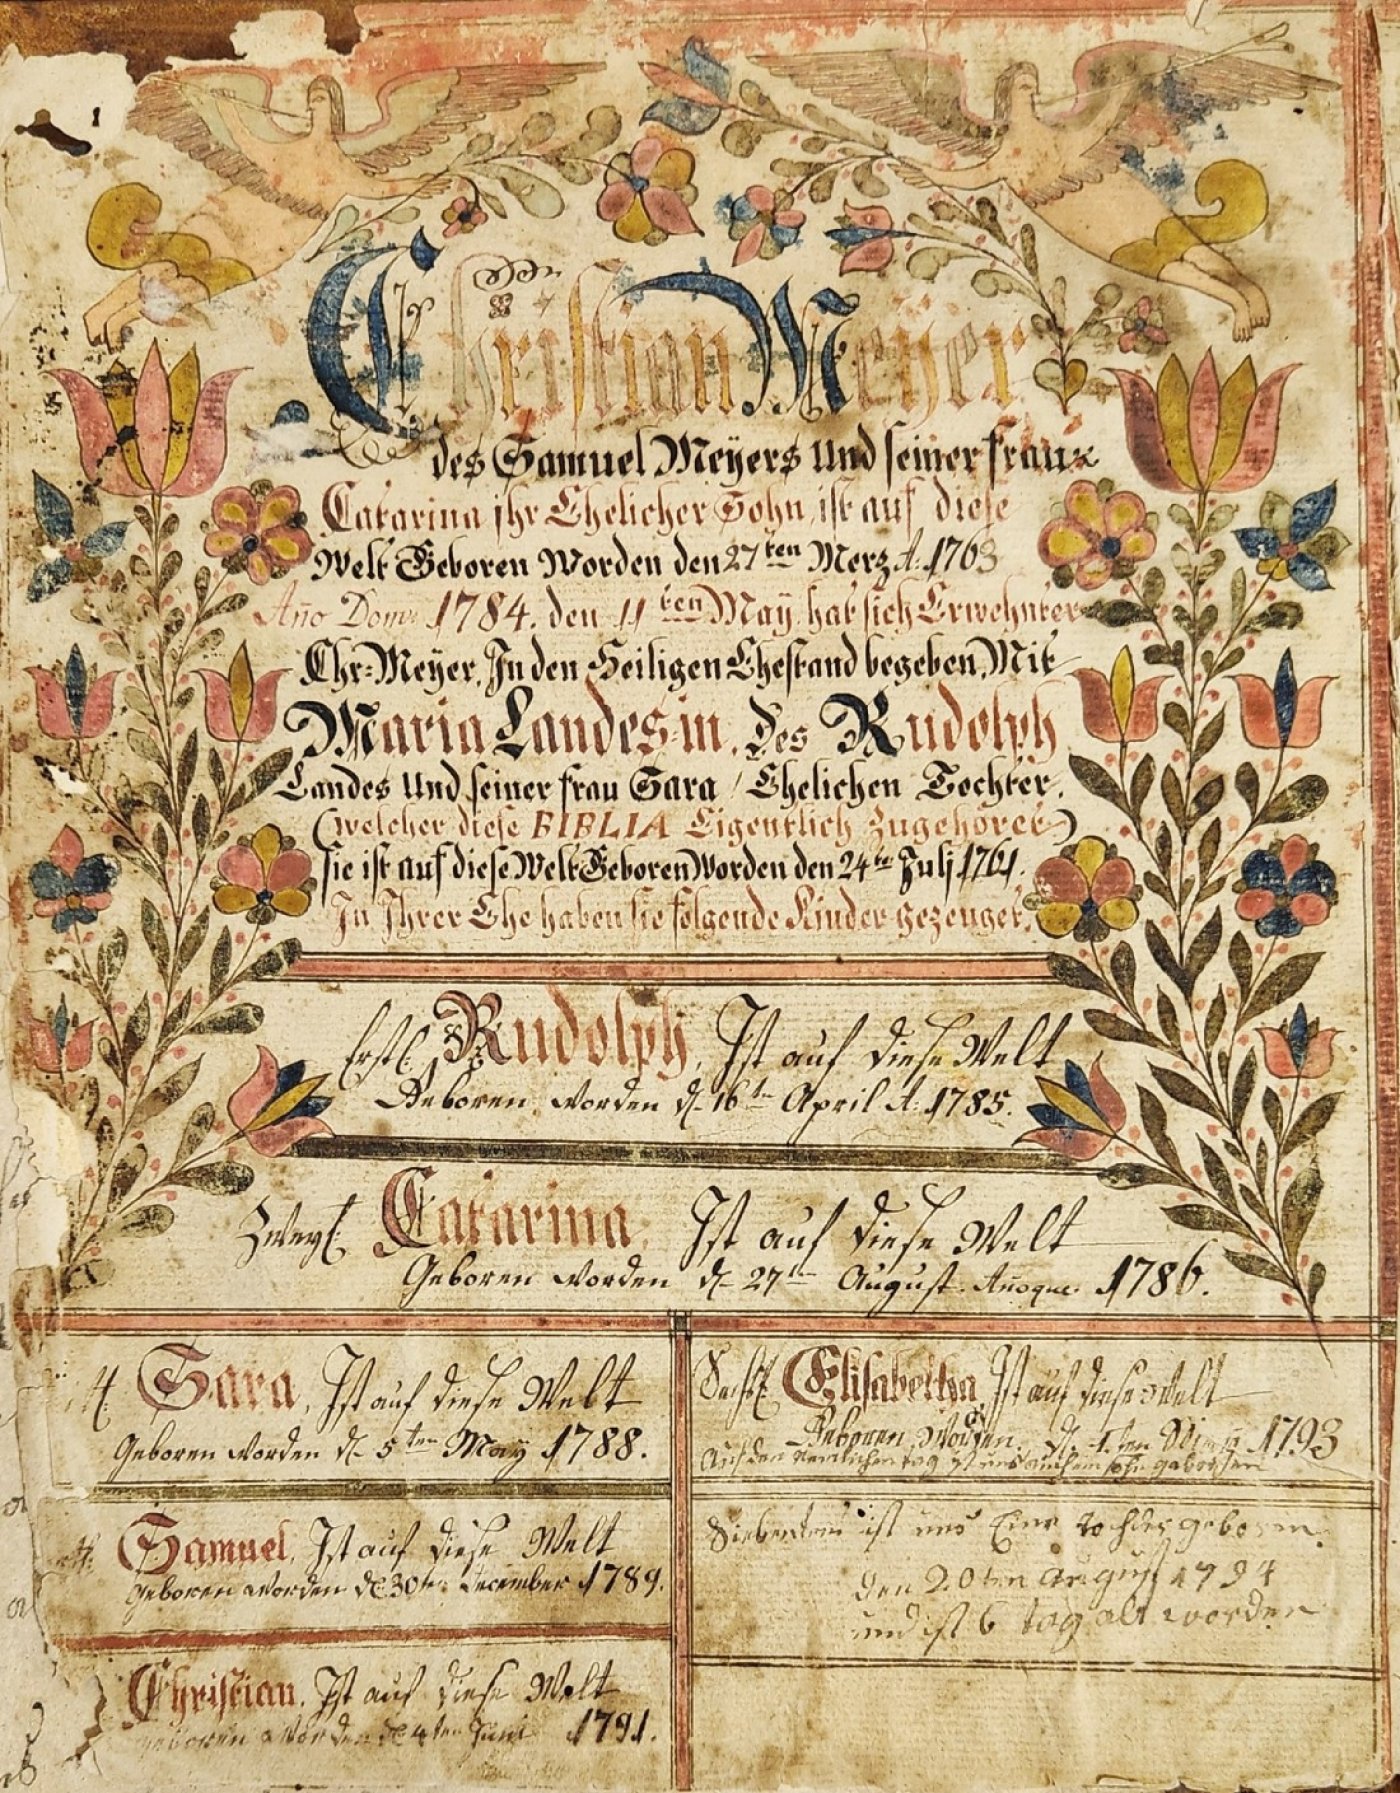 Christian Meÿer
des Samuel Meÿers Und seiner frau
Catarina ihr Ehelicher Sohn, ist auf diese
Welt Geboren Worden den 27ten Merz A: 1763
Año Dom: 1784. den 11ten Maÿ, hat sich Erwehnter
Chr= Meÿer, In den Heiligen Ehestand begeben, Mit
Maria Landes=in, des Rudolph
Landes Und seiner frau Sara / Ehelichen Tochter.
(welcher diese BIBLIA Eigentlich Zugehöret)
sie ist auf diese Welt Geboren Worden den 24te Julj 1761.
In Ihrer Ehe haben sie folgende Kinder gezeuget.
Erstl: Rudolph, Ist auf diese Welt
Geboren worden d- 16tn April A: 1785.
Zweyt: Catarina, Ist auf diese Welt
Geboren worden d- 27tn August. Añoque. 1786.
Sara, Ist auf diese Welt
Geboren worden d- 5ten May 1788.
Samuel, Ist auf diese Welt
Geboren worden d. 30ten December 1789.
Christian, Ist auf diese Welt
geboren worden d 4ten Juni 1791.
Sechst Elisabetha, Ist auf diese Welt
Geboren, Worden, d. 1793
Auf den tag ist uns auch ein sohn geborhen
Siebentens ist uns Eine tochder geboren
den 20ten august 1794
und ist 6 tag alt worden